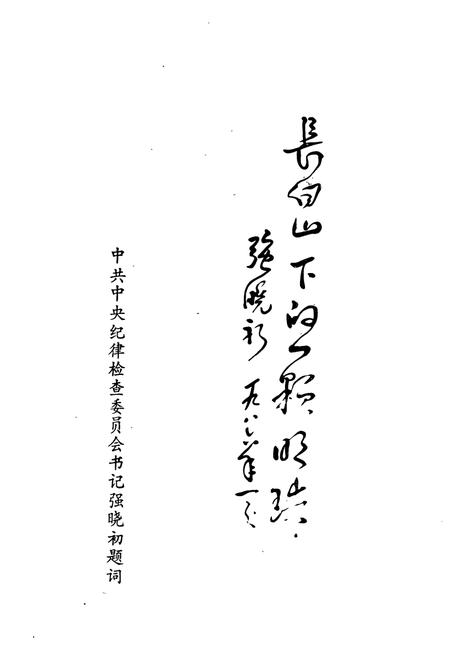 長白山下的一颗明珠
强晓初 一九八年一
中共中央纪律检查委员会书记强晓初题词